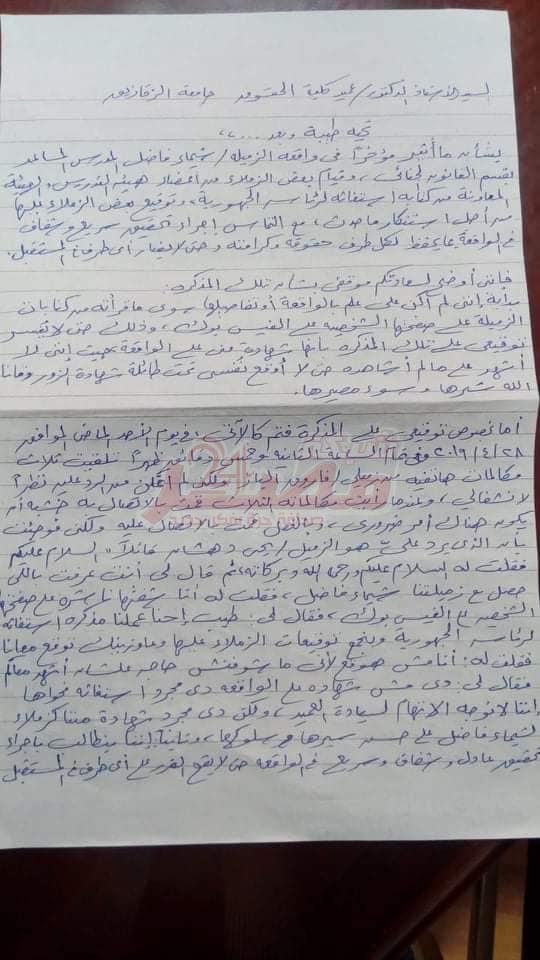 السيد الأستاذ الدكتور/ عميد كلية الحقوق جامعة الزقازيق
تحية طيبة وبعد ...،،
بشأن ما أثير مؤخراً فى واقعة الزميلة/ شيماء فاضل المدرس المساعد
بقسم القانون الجنائى، وقيام بعض الزملاء من أعضاء هيئة التدريس والهيئة
المعاونة من كتابة استغاثة لرئاسة الجمهورية، وتوقيع بعض الزملاء عليها
من أجل استنكار ما حدث، مع التماس إجراء تحقيق سريع وشفاف
فى الواقعة بما يحفظ لكل طرف حقوقه وكرامته وحتى لا يضار أى طرف فى المستقبل.
فإننى أوضح لسعادتكم موقفى بشأن تلك المذكرة:
بداية إننى لم أكن على علم بالواقعة أو تفاصيلها سوى ما قرأته من كتابات
الزميلة على صفحتها الشخصية على الفيس بوك، وذلك حتى لا يفسر
توقيعى على تلك المذكرة بأنها شهادة منى على الواقعة بحيث إننى لا
أشهد على ما لم أشاهده حتى لا أوقع نفسى تحت طائلة شهادة الزور وقانا
الله شرها وسوء مصيرها.
أما بخصوص توقيعى على المذكرة فتم كالآتى: فى يوم الأحد الماضى الموافق
٢٨/٤/٢٠١٩ وفى تمام الساعة الثانية وخمس دقائق ظهراً تلقيت ثلاث
مكالمات هاتفية من زميلى/ فاروق ولكن لم أتمكن من الرد عليه نظراً
لانشغالى، وعندما رأيت مكالماته الثلاث قمت بالاتصال به خشية أن
يكون هناك أمر ضرورى، وبالفعل قمت بالاتصال عليه ولكنى فوجئت
بأن الذى يرد علىّ هو الزميل/ يحيى دهشان قائلاً: السلام عليكم
فقلت له السلام عليكم ورحمة الله وبركاته ثم قال لى أنت عرفت باللى
حصل مع زميلتنا شيماء فاضل، فقلت له أنا شفتها ناشره على صفحتها
الشخصية على الفيس بوك، فقال لى: طيب إحنا عملنا مذكرة استغاثة
لرئاسة الجمهورية وبنجمع توقيعات الزملاء عليها وعاوزينك توقع معانا
فقلت له: أنا مش هوقع لأنى ما شوفتش حاجه علشان أشهد معاكم
فقال لى: دى مش شهاده على الواقعه دى مجرد استغاثه فحواها
إننا لا نوجه الاتهام لسعادة العميد، ولكن دى مجرد شهادة مننا كزملاء
لشيماء فاضل على حسن سيرها وسلوكها، وثانياً إننا بنطالب بإجراء
تحقيق عادل وشفاف وسريع فى الواقعه حتى لا يقع الضرر على أى طرف فى المستقبل